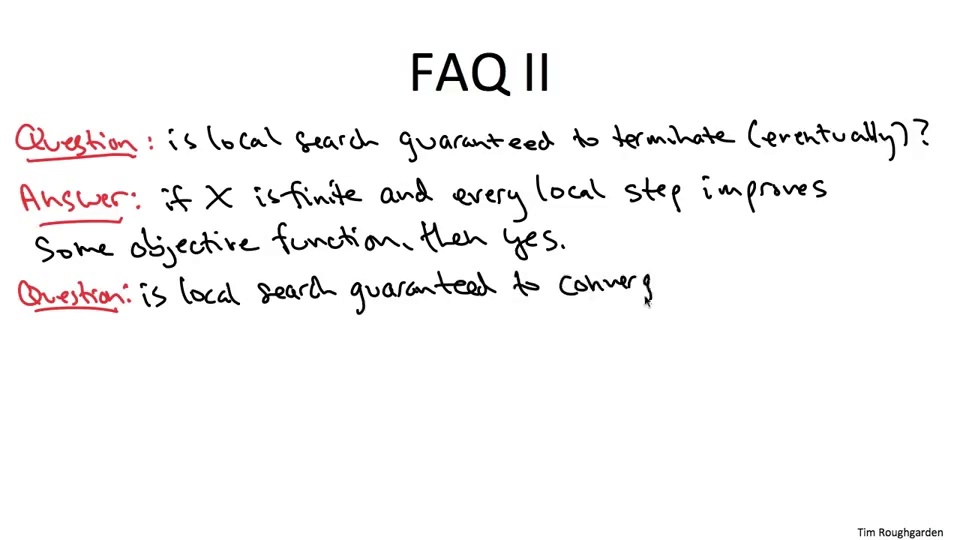 FAQ II
Question: is local search guaranteed to terminate (eventually)?
Answer: if X is finite and every local step improves
some objective function, then yes.
Question: is local search guaranteed to converg
Tim Roughgarden